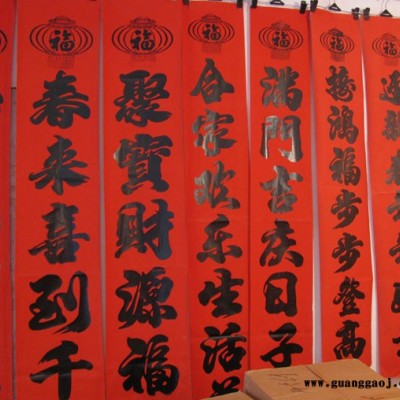 福
春来喜到千
福
聚寳财源福
福
合家欢乐生活
福
满門吉庆日子
福
接鸿福步步登高
福
www.guanggaoj.com